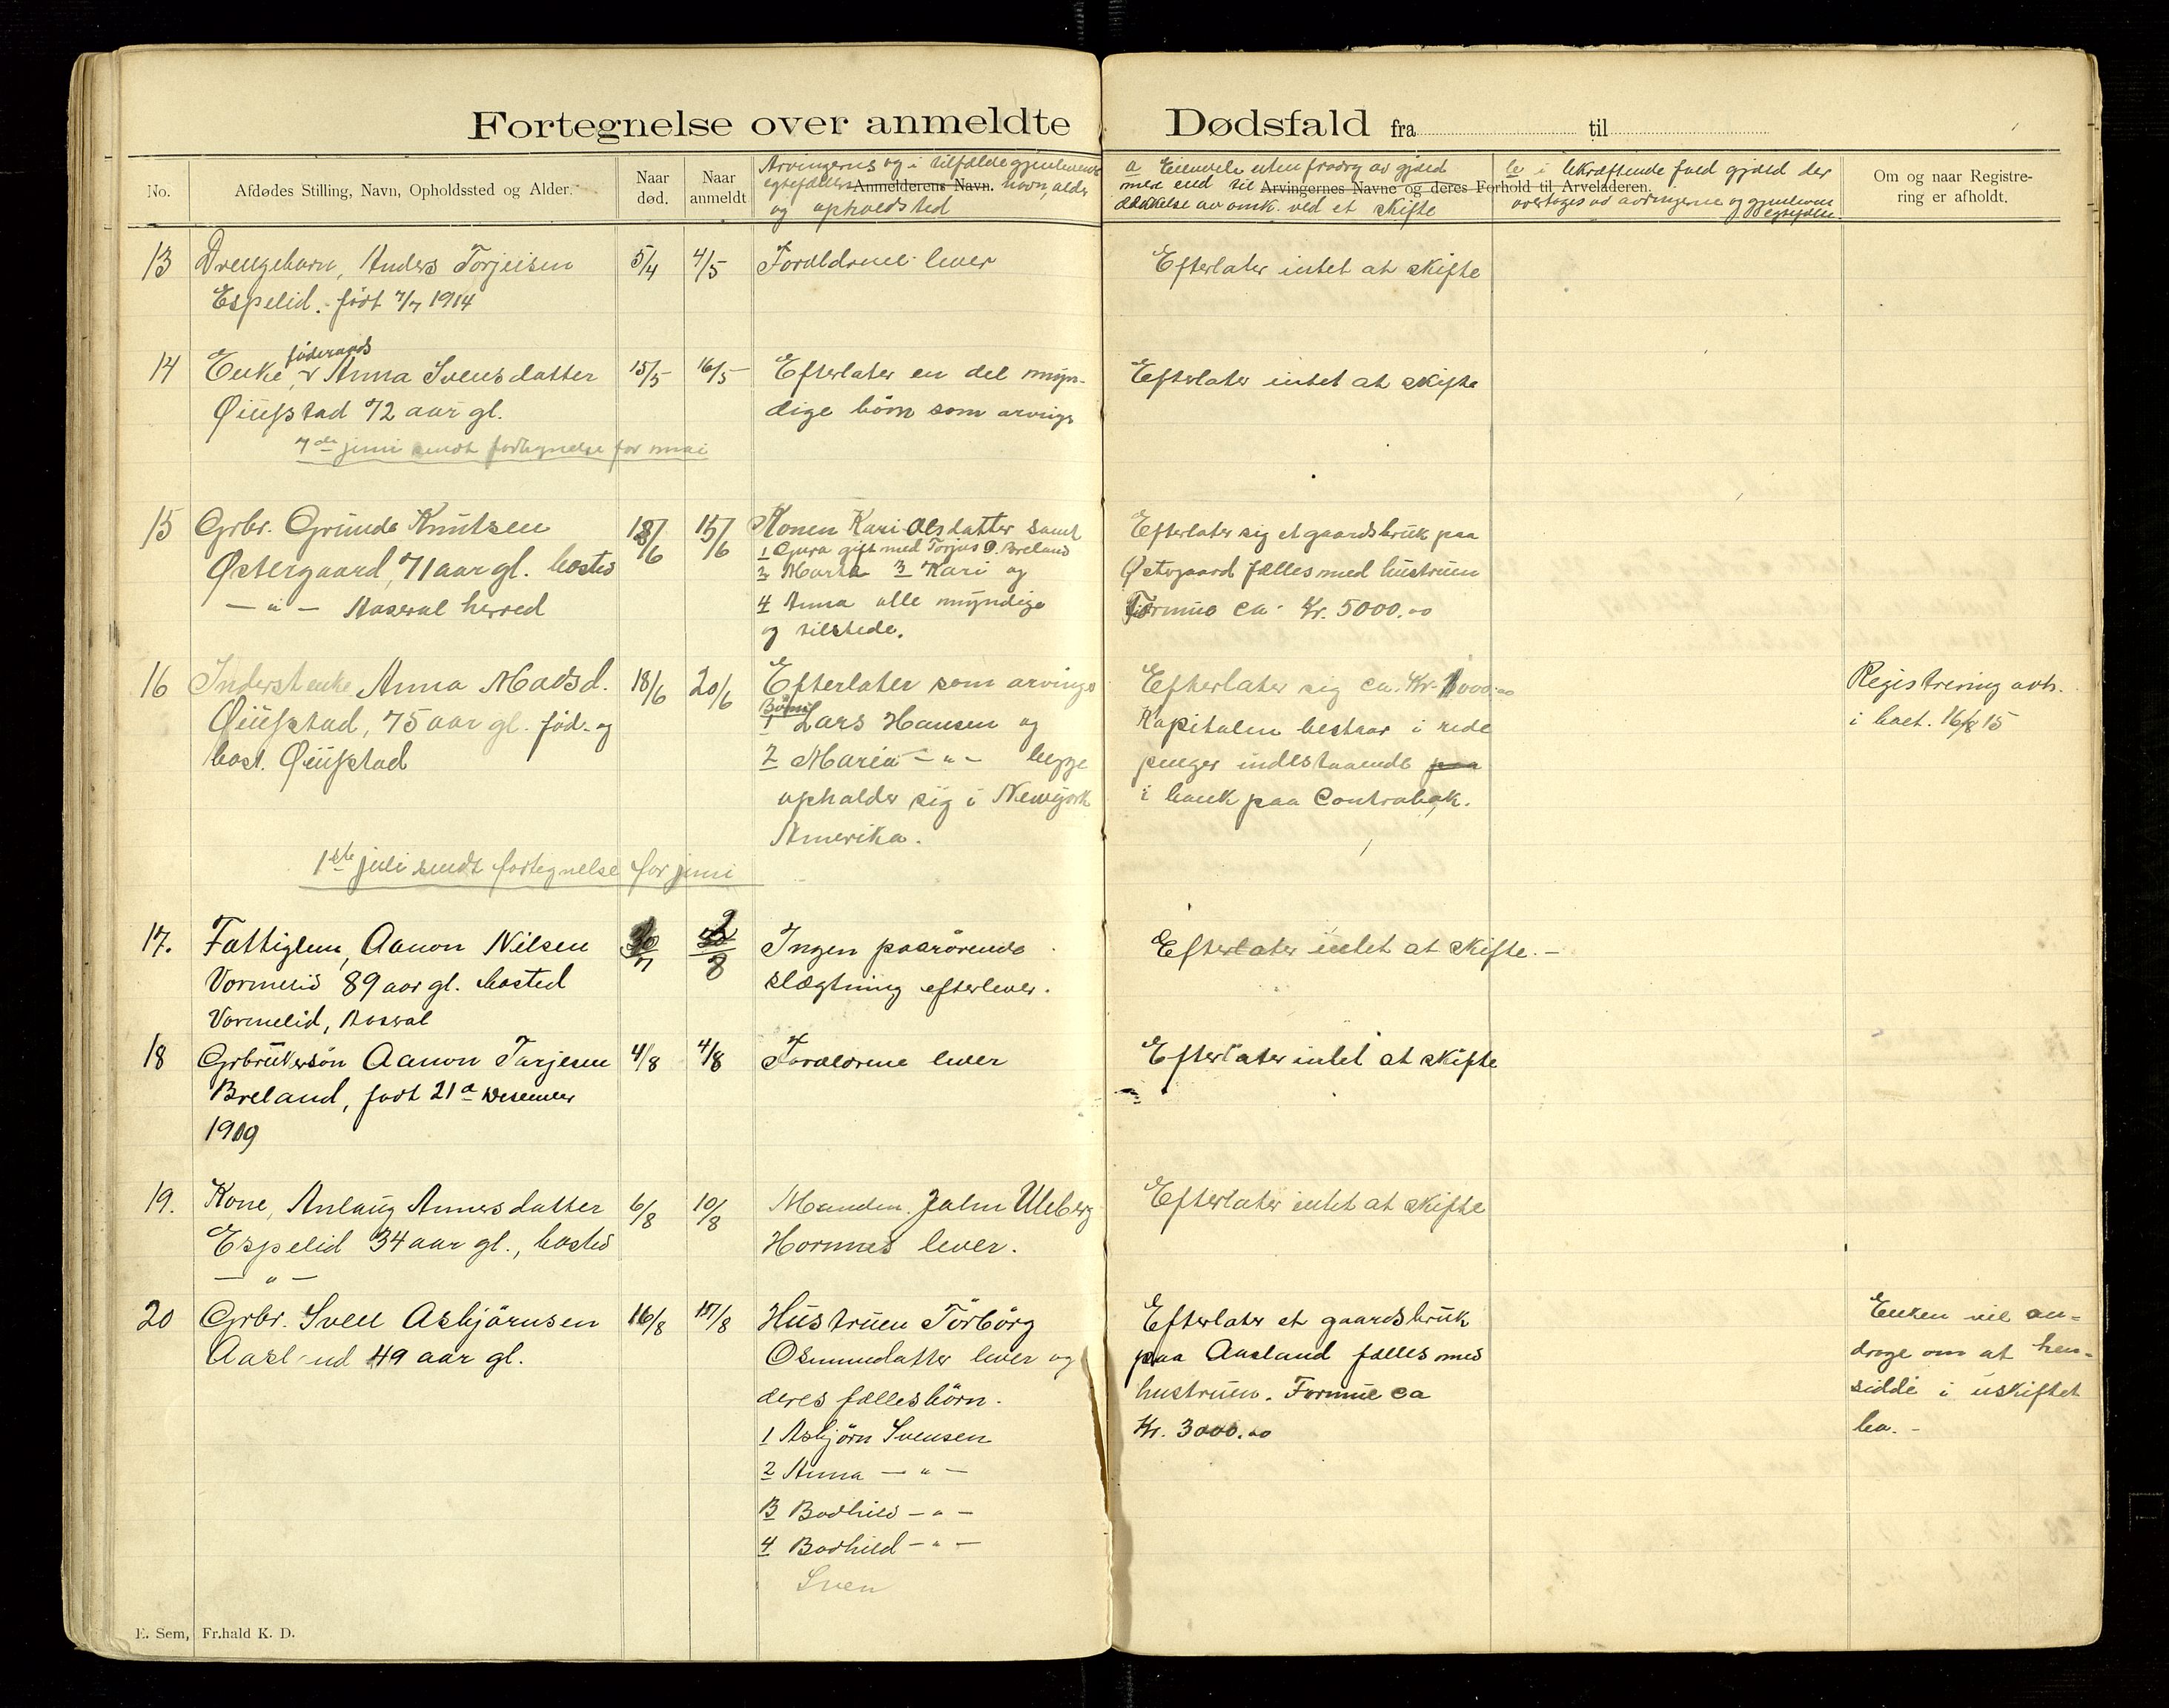 Fortegnelse over anmeldte Dødsfald fra til
No.
Afdødes Stilling, Navn, Opholdssted og Alder.
Naar død.
Naar anmeldt
Arvingerns og i tilfælde gjenlevende
egtefælles Anmelderens Navn. navn, alder
og opholdsted
a Eiendele uten fradrag av gjæld
mere end til Arvingernes Navne og deres Forhold til Arveladeren.
dækkelse av omk. ved et skifte
i bekræftende fald gjæld der
overtages av arvingerne og gjenlevende
egtefælle
Om og naar Registre-
ring er afholdt.
13 Drengebarn, Anders Torjeisen 5/4 4/5 Foraldrene lever Efterlater intet at skifte
Espelid. født 7/7 1914
føderaads
14 Enke, v Anna Svensdatter 15/5 16/5 Efterlater en del myn- Efterlater intet at skifte
Øiufstad 72 aar gl. dige børn som arvinge
7de juni sendt fortegnelse for mai
15 Grbr. Grunde Knutsen 13/6 15/6 Konen Kari Olsdatter samt Efterlater sig et gaardsbruk paa
1 Gura gift med Torjus O. Breland
Østergaard, 71 aar gl. bosted 2 Marta 3 Kari og Østergaard fælles med hustruen
— " — Aaseral herred 4 Anna alle myndige Formue ca. Kr. 5000.00
og tilstede.
16 Inderstenke Anna Madsd. 18/6 20/6 Efterlater som arvinge Efterlater sig ca. Kr. 1000.00 Registrering avh.
Børn
Øiufstad, 75 aar gl. fød. og 1 Lars Hansen og Kapitalen bestaar i rede i boet. 16/8 15
bost. Øiufstad 2 Maria — " — begge penger indestaaende paa
opholder sig i Newyork i bank paa Contrabok.
Amerika.
1ste juli sendt fortegnelse for juni
17. Fattiglem, Aanon Nilsen 30/7 2/8 Ingen paarørende Efterlater intet at skifte. —
Vormelid 89 aar gl. bosted slægtning efterlever.
Vormelid, Aaseral
18 Grbrukersøn Aanon Tarjesen 4/8 4/8 Forældrene lever Efterlater intet at skifte
Breland, født 21de Desember
1909
19. Kone, Anlaug Annersdatter 6/8 10/8 Manden. Jalm Uleberg Efterlater intet at skifte
Espelid 34 aar gl., bosted Hornnes lever.
— " —
20 Grbr. Sven Asbjørnsen 16/8 17/8 Hustruen Torborg Efterlater et gaardsbruk Enken vil an-
Aasland 49 aar gl. Osmundatter lever og paa Aasland fælles med drage om at hen-
deres fælles børn. hustruen. Formue ca sidde i uskiftet
1 Asbjørn Svensen Kr. 3000.00 bo. —
2 Anna — " —
3 Bodhild — " —
4 Bodhild — " —
Sven
E. Sem, Fr.hald K. D.